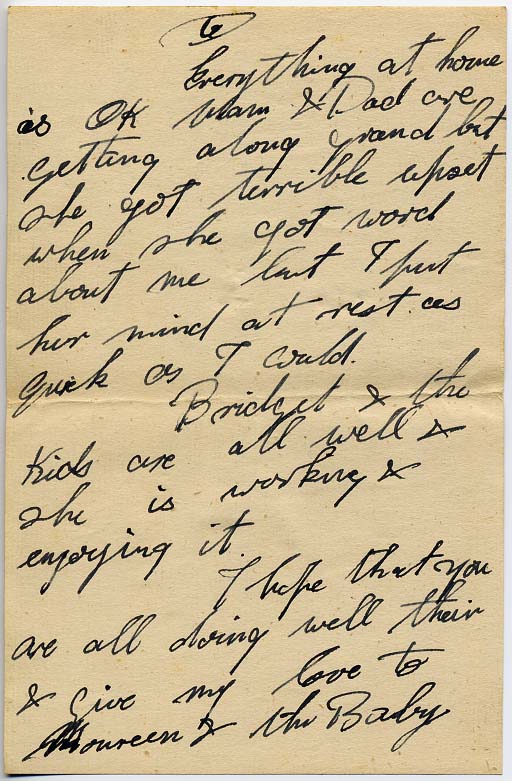 6
Everything at home
is OK Mam & Dad are
getting along grand but
she got terrible upset
when she got word
about me but I put
her mind at rest as
quick as I could.
Bridget & the
Kids are all well &
she is working &
enjoying it.
I hope that you
are all doing well their
& give my love to
Moureen & the Baby